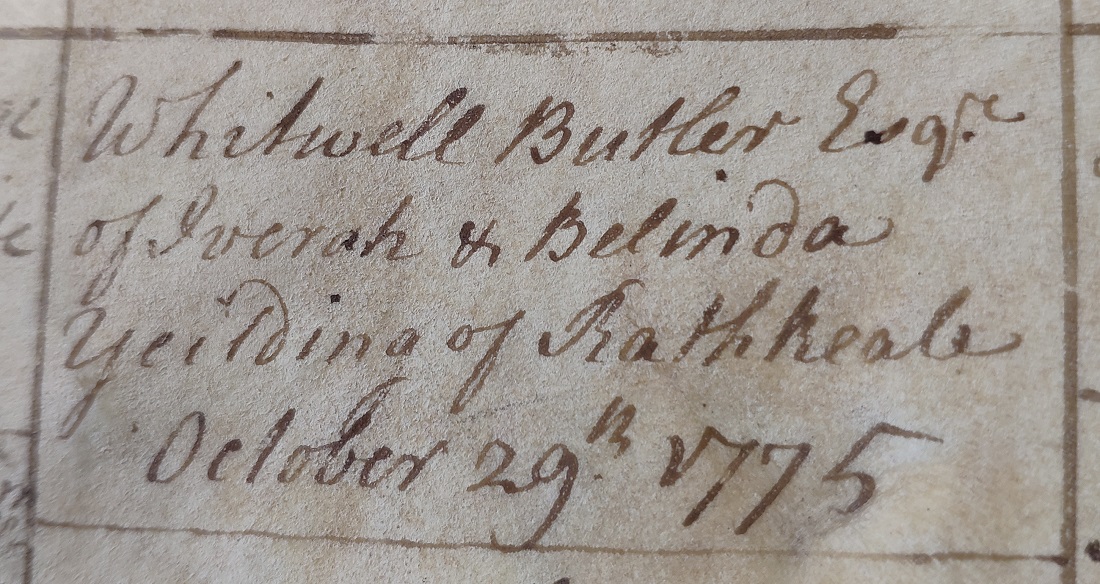 Whitwell Butler Esqre
of Iverah & Belinda
Yeilding of Rathkeale
October 29th 1775